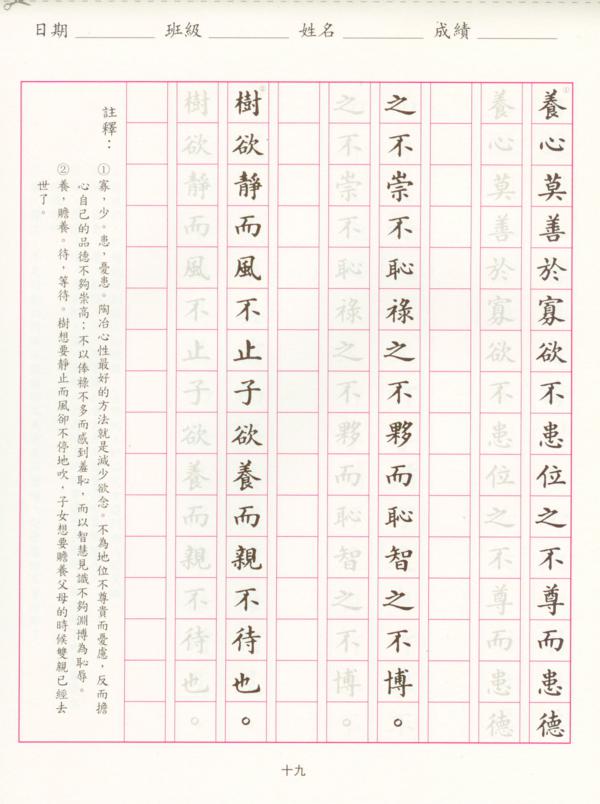 日期 班級 姓名 成績
①養心莫善於寡欲不患位之不尊而患德
養心莫善於寡欲不患位之不尊而患德
之不崇不恥祿之不夥而恥智之不博。
之不崇不恥祿之不夥而恥智之不博。
②樹欲靜而風不止子欲養而親不待也。
樹欲靜而風不止子欲養而親不待也。
註釋：①寡，少。患，憂患。陶冶心性最好的方法就是減少欲念。不為地位不尊貴而憂慮，反而擔
心自己的品德不夠崇高；不以俸祿不多而感到羞恥，而以智慧見識不夠淵博為恥辱。
②養，贍養。待，等待。樹想要靜止而風卻不停地吹，子女想要贍養父母的時候雙親已經去
世了。
十九